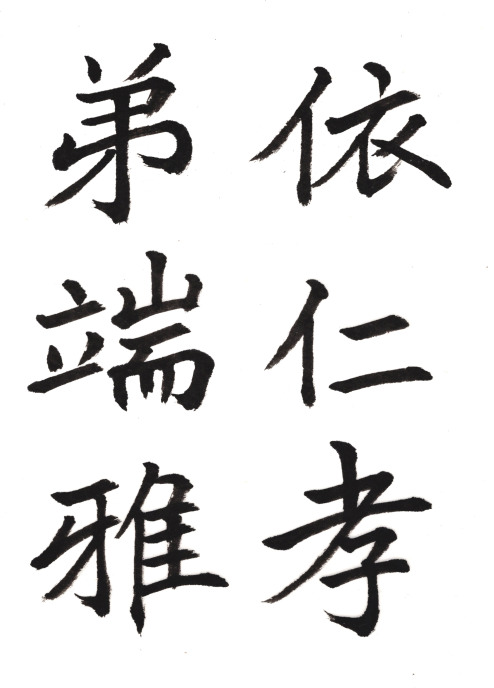 依仁孝
弟端雅